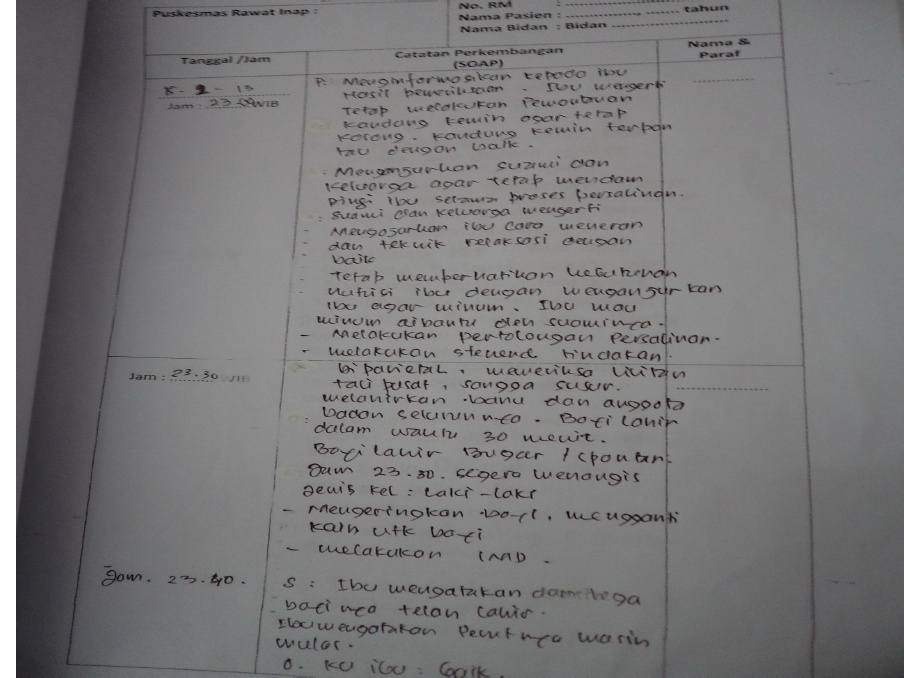 Puskesmas Rawat Inap :
No. RM :
Nama Pasien : .................., ........ tahun
Nama Bidan : Bidan ......................
Tanggal /Jam
Catatan Perkembangan
(SOAP)
Nama &
Paraf
Jam : 23.00 WIB
P: Menginformasikan kepada ibu
Hasil pemeriksaan. Ibu mengerti
Tetap melakukan Pemantauan
kandung kemih agar tetap
kosong. kandung kemih terpan
tau dengan baik.
: Menganjurkan suami dan
keluarga agar tetap mendam
pingi ibu selama proses persalinan.
: Suami dan keluarga mengerti
- Mengajarkan ibu cara meneran
- dan teknik relaksasi dengan
- baik
- Tetap memperhatikan kebutuhan
- nutrisi ibu dengan menganjurkan
ibu agar minum. Ibu mau
minum dibantu oleh suaminya.
- Melakukan pertolongan Persalinan.
- melakukan tindakan.
Jam : 23.30 WIB
biparietal, memeriksa lilitan
tali pusat, sangga susur.
melahirkan bahu dan anggota
badan seluruhnya. Bayi lahir
dalam waktu 30 menit.
Bayi lahir Bugar / spontan
Jam 23.30. segera menangis
Jenis kel : Laki-laki
- Mengeringkan bayi, mengganti
kain utk bayi
- melakukan IMD.
Jam. 23.40.
S : Ibu mengatakan lega
bayinya telah lahir.
Ibu mengatakan Perutnya masih
mulas.
O. KU ibu : Baik.